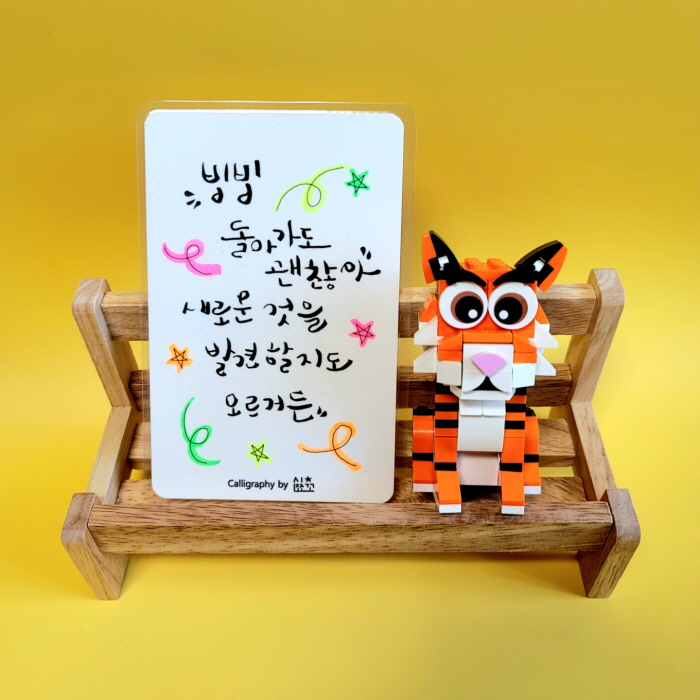 빙빙
돌아가도
괜찮아
새로운 것을
발견할지도
모르거든
Calligraphy by